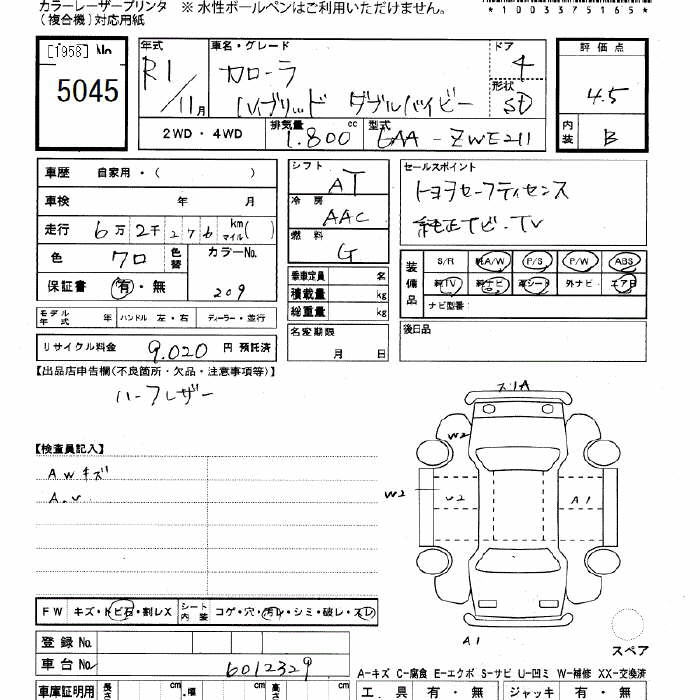 カラーレーザープリンタ ※ 水性ボールペンはご利用いただけません。
(複合機)対応用紙
*1003375165*
[1958] No 5045
年式 R1/11月
車名・グレード カローラ
ハイブリッド ダブルバイビー
ドア 4
形状 SD
評価点 4.5
内装 B
2WD ・ 4WD
排気量 1.800 cc
型式 6AA-ZWE211
車歴 自家用・( )
車検 年 月
走行 6万2千276 km マイル( )
色 クロ 色替
カラーNo. 209
保証書 有・無
シフト AT
冷房 AAC
燃料 G
セールスポイント
トヨタセーフティセンス
純正ナビ・TV
装備品 S/R 純A/W P/S P/W ABS
純TV 純ナビ 革シート 外ナビ エアB
ナビ型番:
乗車定員 名
積載量 kg
総重量 kg
モデル年式 年 ハンドル 左・右 ディーラー・並行
名変期限 月 日
後日品
リサイクル料金 9.020 円 預託済
【出品店申告欄(不良箇所・欠品・注意事項等)】
ハーフレザー
【検査員記入】
AWキズ
W2
W2
U2
A1
A1
FW キズ・トビ石・割レX
シート内装 コゲ・穴・汚レ・シミ・破レ・スレ
登録 No.
車台 No. 6012329
スペア
A-キズ C-腐食 E-エクボ S-サビ U-凹ミ W-補修 XX-交換済
車庫証明用 長さ cm ・幅 cm 高さ cm
工具 有・無 ジャッキ 有・無